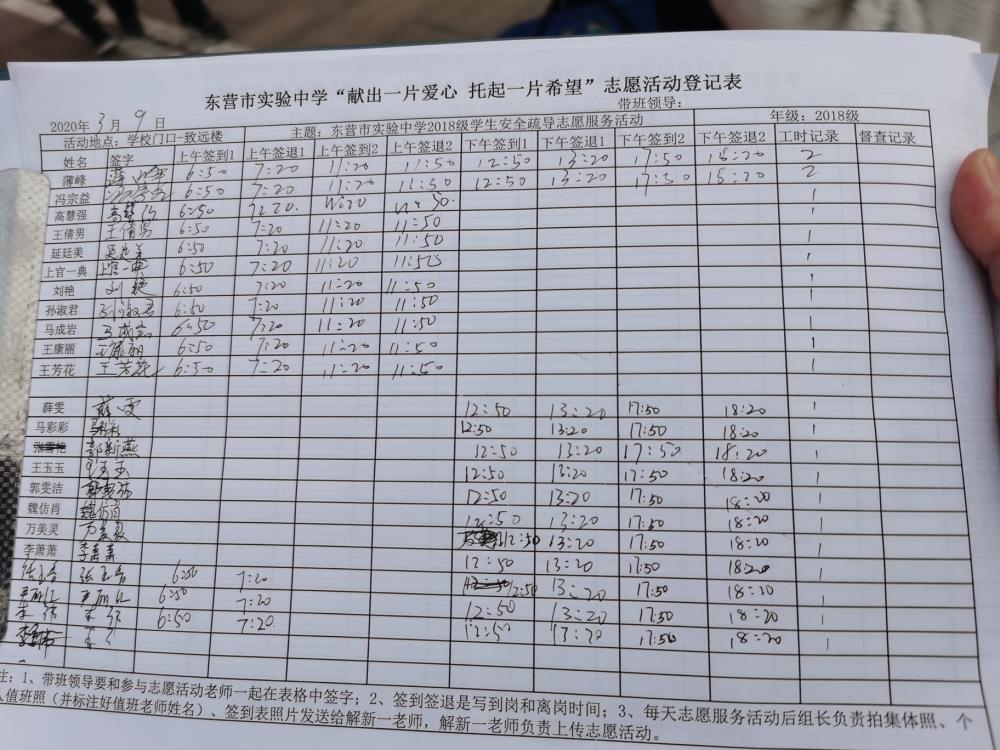 东营市实验中学“献出一片爱心 托起一片希望”志愿活动登记表
2020年3月9日 带班领导：
活动地点：学校门口-致远楼 主题：东营市实验中学2018级学生安全疏导志愿服务活动 年级：2018级
姓名 签字 上午签到1 上午签退1 上午签到2 上午签退2 下午签到1 下午签退1 下午签到2 下午签退2 工时记录 督查记录
薄峰 6:50 7:20 11:20 11:50 12:50 13:20 17:50 18:20 2
冯宗益 6:50 7:20 11:20 11:50 12:50 13:20 17:50 18:20 2
高慧强 高慧强 6:50 7:20 11:20 11:50 1
王倩男 王倩男 6:50 7:20 11:20 11:50 1
延廷美 延廷美 6:50 7:20 11:20 11:50 1
上官一典 上官一典 6:50 7:20 11:20 11:50 1
刘艳 刘艳 6:50 7:20 11:20 11:50 1
孙淑君 孙淑君 6:50 7:20 11:20 11:50 1
马成岩 马成岩 6:50 7:20 11:20 11:50 1
王康丽 王康丽 6:50 7:20 11:20 11:50 1
王芳花 王芳花 6:50 7:20 11:20 11:50 1
薛雯 薛雯 12:50 13:20 17:50 18:20 1
马彩彩 12:50 13:20 17:50 18:20 1
郭新燕 12:50 13:20 17:50 18:20 1
王玉玉 王玉玉 12:50 13:20 17:50 18:20 1
郭雯洁 12:50 13:20 17:50 18:20 1
魏仿肖 魏仿肖 12:50 13:20 17:50 18:20 1
万美灵 万美灵 12:50 13:20 17:50 18:20 1
李萧萧 李萧萧 12:50 13:20 17:50 18:20 1
张玉香 张玉香 6:50 7:20 12:50 13:20 17:50 18:20 1
6:50 7:20 12:50 13:20 17:50 18:20 1
6:50 7:20 12:50 13:20 17:50 18:20 1
注：1、带班领导要和参与志愿活动老师一起在表格中签字；2、签到签退是写到岗和离岗时间；3、每天志愿服务活动后组长负责拍集体照、个
人值班照（并标注好值班老师姓名）、签到表照片发送给解新一老师，解新一老师负责上传志愿活动。